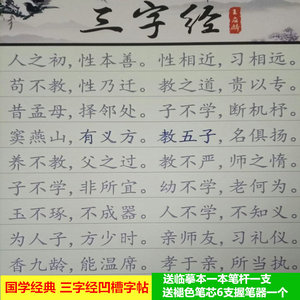 三字经
人之初，性本善。性相近，习相远。
苟不教，性乃迁。教之道，贵以专。
昔孟母，择邻处。子不学，断机杼。
窦燕山，有义方。教五子，名俱扬。
养不教，父之过。教不严，师之惰。
子不学，非所宜。幼不学，老何为。
玉不琢，不成器。人不学，不知义。
为人子，方少时。亲师友，习礼仪。
香九龄，能温席。孝于亲，所当执。
国学经典 三字经凹槽字帖
送临摹本一本笔杆一支
送褪色笔芯6支握笔器一个